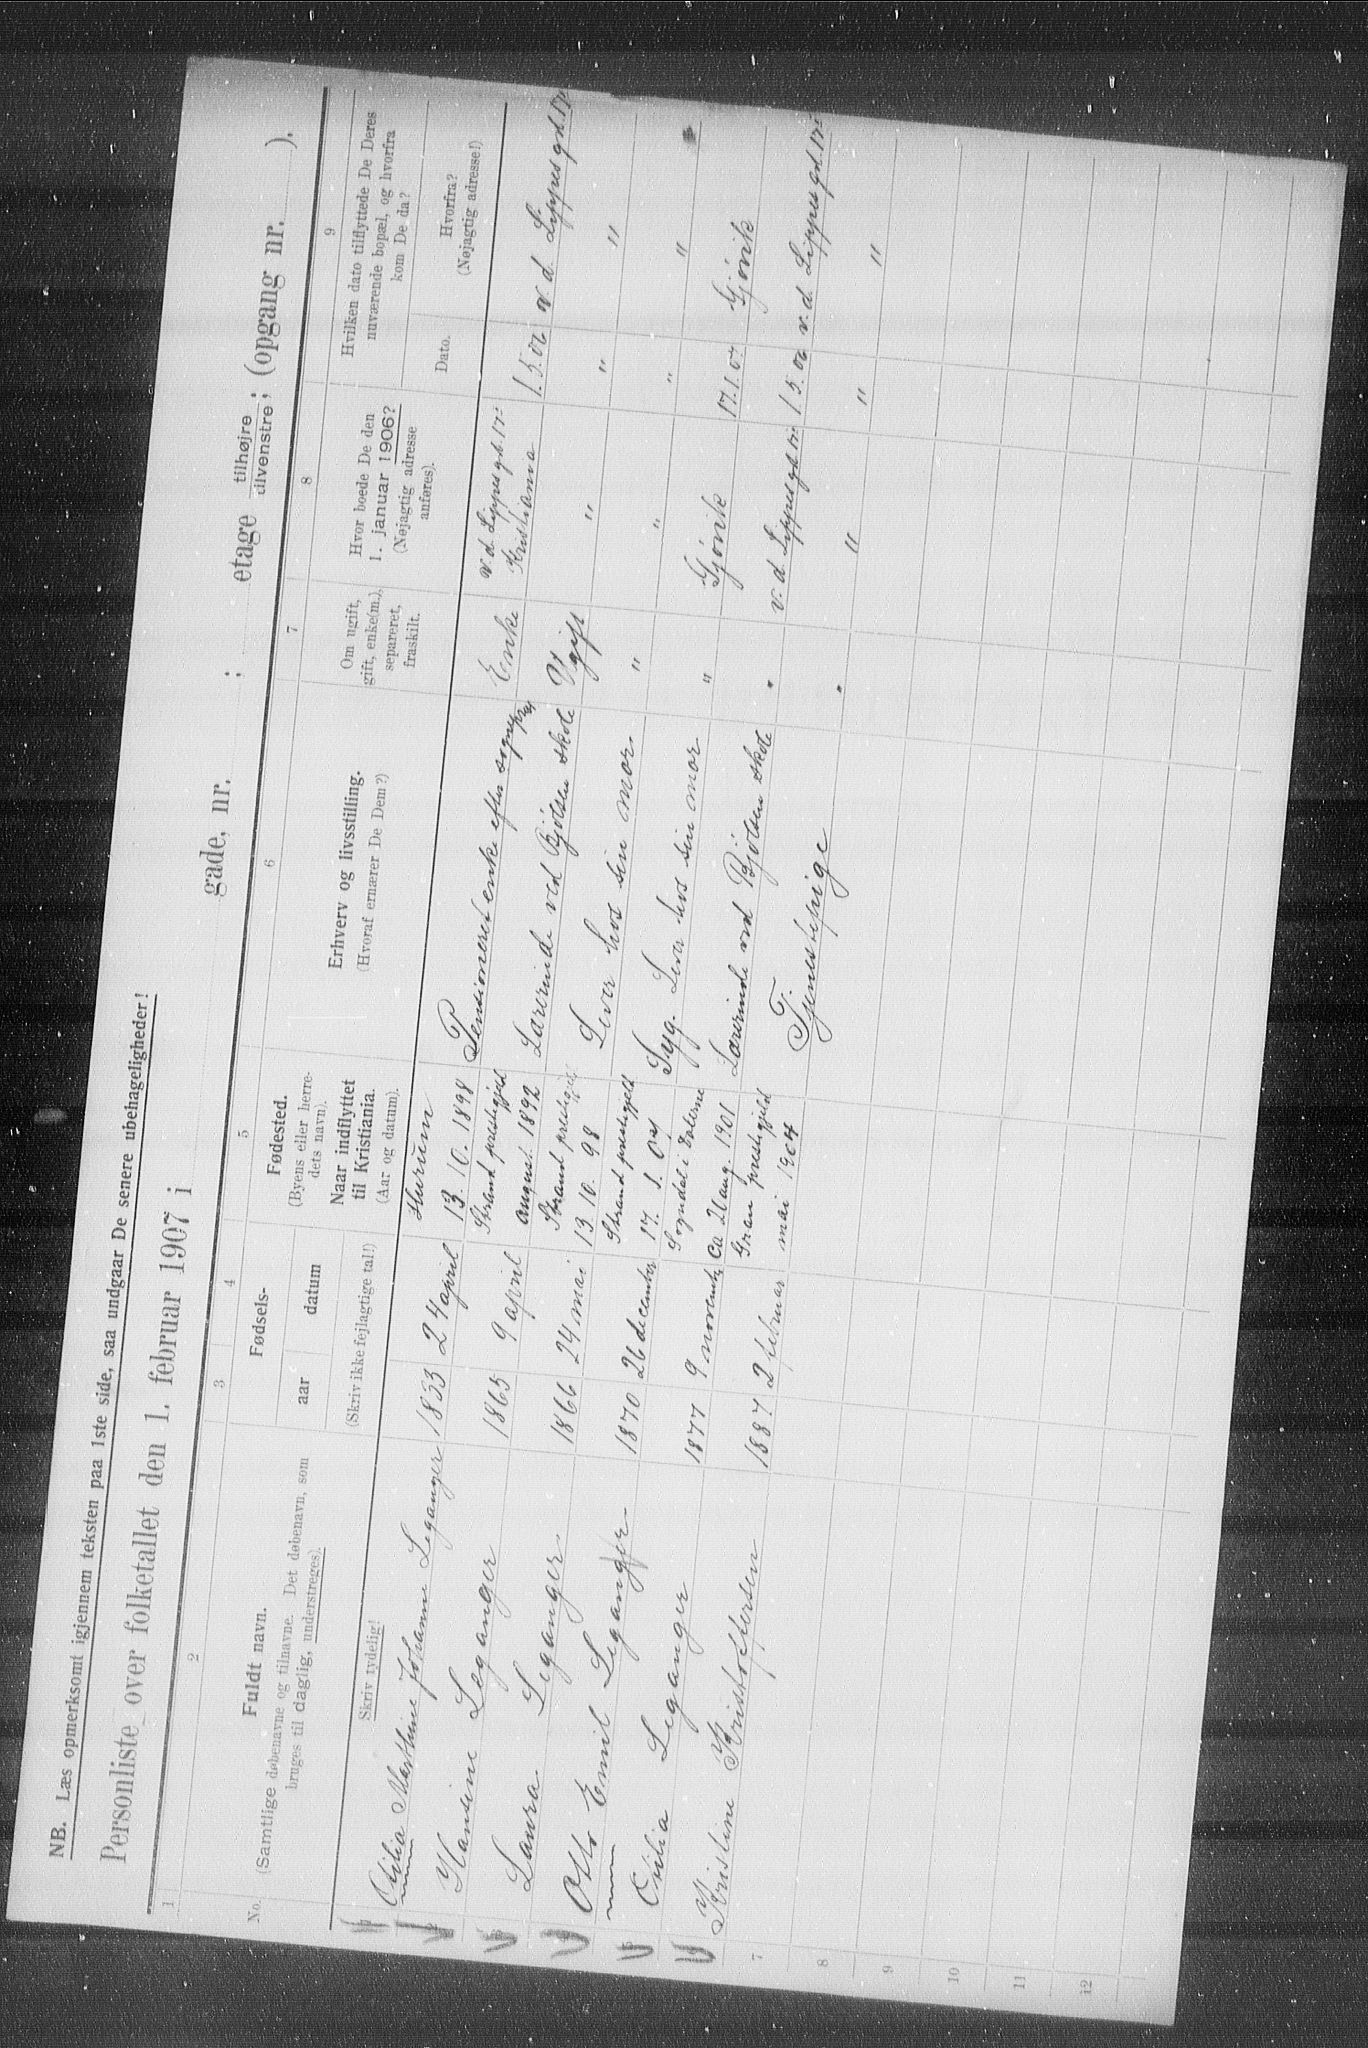 NB. Læs opmerksomt igjennem teksten paa 1ste side, saa undgaar De senere ubehageligheder!
Personliste over folketallet den 1. februar 1907 i gade, nr. ; etage tilhøjre tilvenstre; (opgang nr. ).
1 2 3 4 5 6 7 8 9
No.
Fuldt navn.
(Samtlige døbenavne og tilnavne. Det døbenavn, som
bruges til daglig, understreges).
Skriv tydelig!
Fødsels-
aar datum
(Skriv ikke fejlagtige tal!)
Fødested.
(Byens eller herre-
dets navn).
Naar indflyttet
til Kristiania.
(Aar og datum).
Erhverv og livsstilling.
(Hvoraf ernærer De Dem?)
Om ugift,
gift, enke(m.),
separeret,
fraskilt.
Hvor boede De den
1. januar 1906?
(Nøjagtig adresse
anføres).
Hvilken dato tilflyttede De Deres
nuværende bopæl, og hvorfra
kom De da?
Dato.
Hvorfra?
(Nøjagtig adresse!)
Otilia Mathine Johanne Leganger 1833 24 april Hurum 13. 10. 1898 Pensioneret enke efter Enke v. d. Lippes gd. 17 Kristiania 1.5.06 v. d. Lippes gd. 17
Hansine Leganger 1865 9 april Strand prestegjeld august 1892 Lærerinde ved Bjölsen skole Ugift " " "
Laura Leganger 1866 24 mai Strand prestegjeld 13 10. 98 Lever hos sin mor. " " " "
Otto Emil Leganger 1870 26 december Strand prestegjeld 17. 1. 07 Syg. Lever hos sin mor " Gjövik 17.1.07 Gjövik
Otilia Leganger 1877 9 november Sogndal i Dalerne ca 20 aug. 1901 Lærerinde ved Bjölsen skole " v. d. Lippes gd. 17 1.5.06 v. d. Lippes gd. 17
Kristine Kristoffersen 1887 2 februar Gran prestegjeld mai 1904 Tjenestepige " " " "
7
8
9
10
11
12